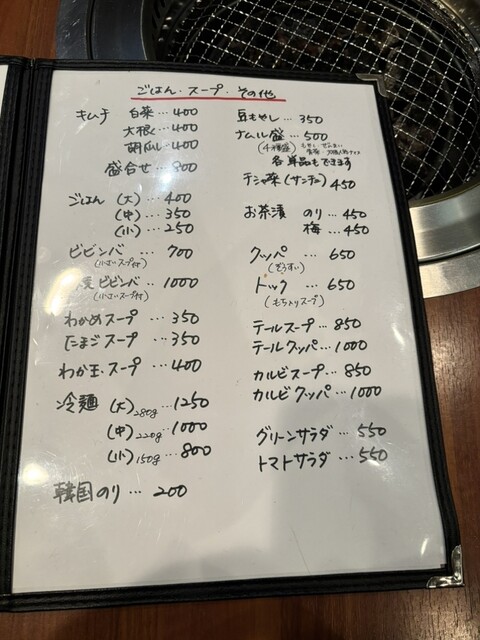 ごはん・スープ・その他
キムチ 白菜…400
大根…400
胡瓜…400
盛合せ…800
ごはん (大)…400
(中)…350
(小)…250
ビビンバ…700
(小さいスープ付)
ビビンバ…1000
(小さいスープ付)
わかめスープ…350
たまごスープ…350
わか玉・スープ…400
冷麺 (大)280g…1250
(中)220g…1000
(小)150g…800
韓国のり…200
豆もやし…350
ナムル盛…500
(4種盛)
各単品もできます
チシャ菜(サンチュ) 450
お茶漬 のり…450
梅…450
クッパ…650
(ぞうすい)
トック…650
(もち入りスープ)
テールスープ…850
テールクッパ…1000
カルビスープ…850
カルビクッパ…1000
グリーンサラダ…550
トマトサラダ…550